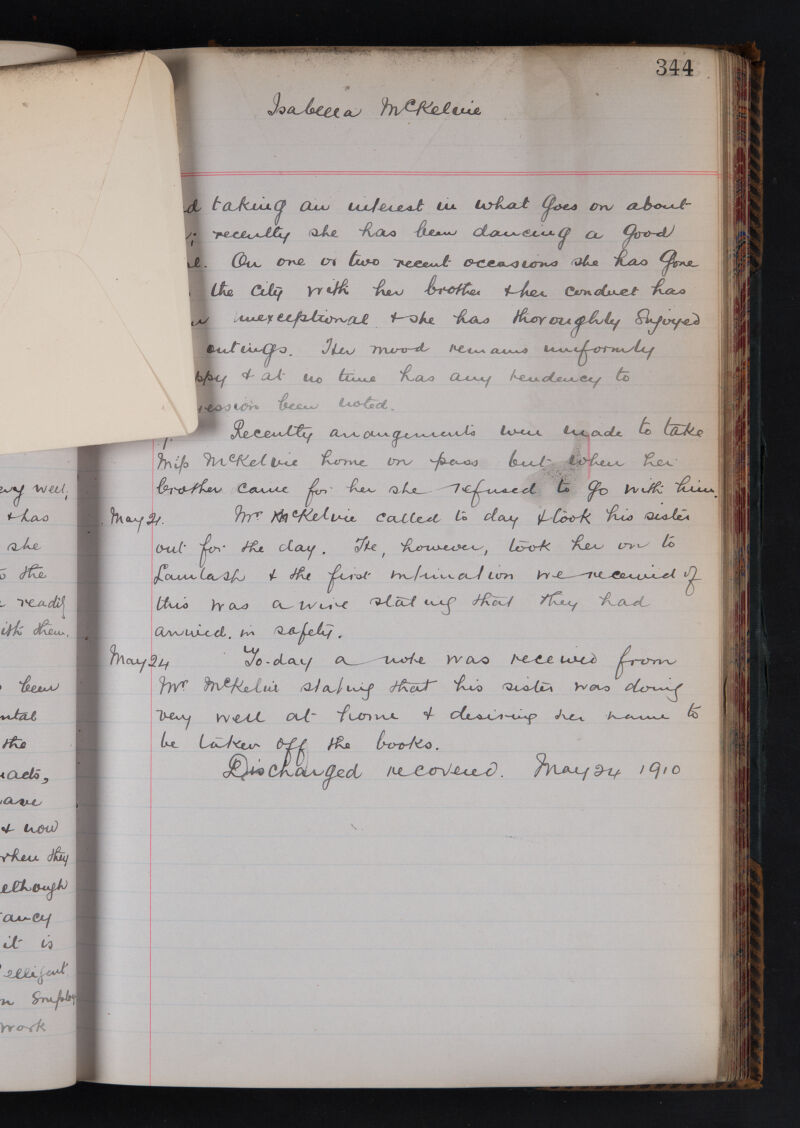 344
Isabella McKelvie
d taking an interest in what goes on about
; recently she has been dancing a good
l. On one or two recent occasions she has gone
the City with her brother & her conduct has
unexceptional & she has thoroughly enjoyed
outings. Her mood remains uniformly
ppy & at no time has any tendency to
ression been noted.
Recently arrangements were made to take
Miss McKelvie home on pass but when her
brother came for her she refused to go with him.
May 21. Mr McKelvie called to day & took his sister
out for the day. He, however, took her on to
Lamlash & the first intimation we received of
this was a wire stating that they had
arrived in safety.
May 24 To-day a note was received from
Mr McKelvie stating that his sister was doing
very well at home & desiring her name to
be taken off the books.
Discharged recovered. May 24 1910
well,
& has
she
the
readily
with them.
been
ntal
the
acts,
ave
& now
when they
although
ancy
it is
elligent
work